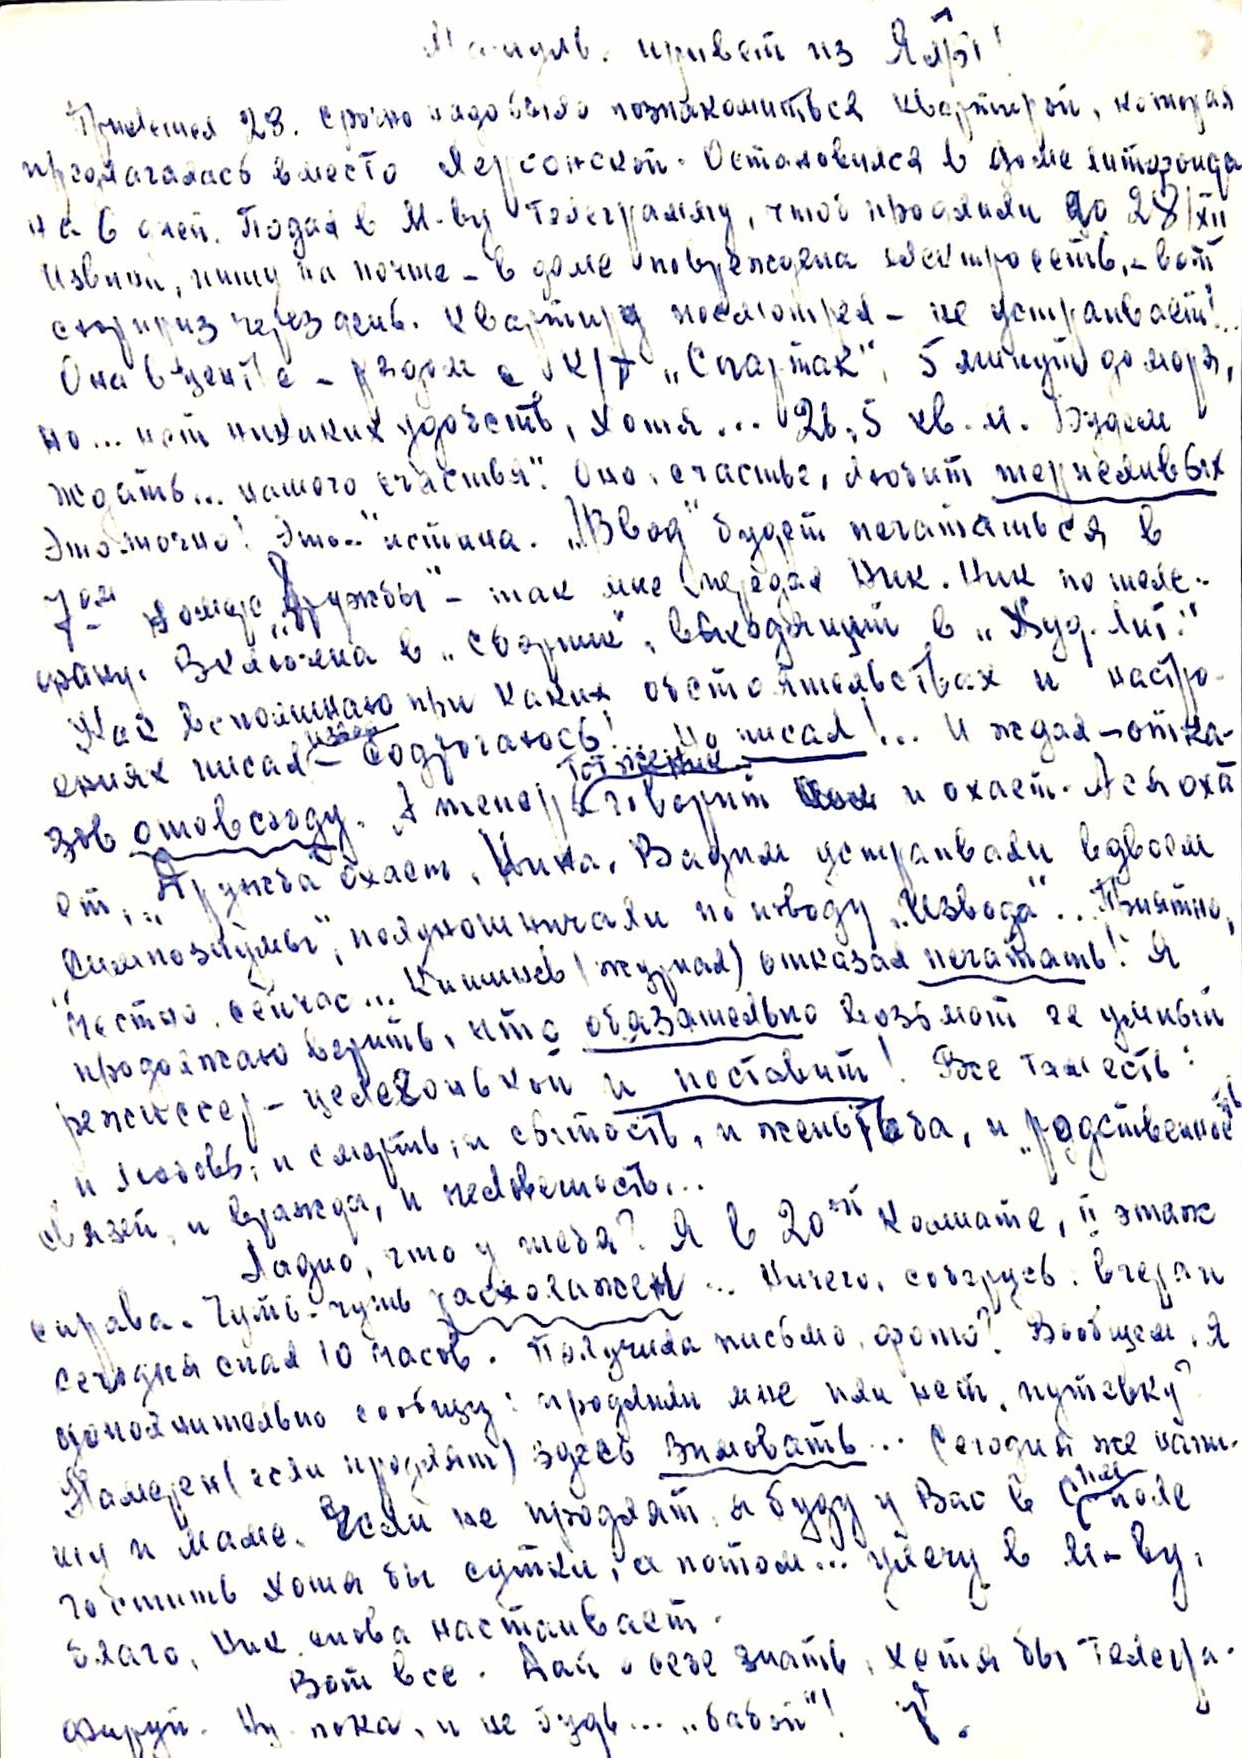 привет из Ялты!
Приехал 28. Срочно надо было познакомиться квартирой, которая
предлагалась вместо Херсонской. Остановился в доме литфонда
на 6 дней. Подал в М-ву телеграмму, чтоб продлили до 28/XII
Извини, пишу на почте – в доме повреждена электросеть, – вот
сюрприз через день. Квартиру посмотрел – не устраивает!..
Она в центре – рядом с к/т „Спартак", 5 минут до моря,
но... нет никаких удобств, хотя... 26,5 кв. м. Будем
ждать... нашего счастья". Оно, счастье, любит терпеливых
Это точно! Это – истина. „Извод" будет печататься в
7ом номере „Дружбы" – так мне передал Ник. Ник по теле-
фону. Включена в „сборник", выходящий в „Худ. Лит."
Как вспоминаю при каких обстоятельствах и настро-
ениях писал – содрогаюсь! Но писал!... И ждал – отка-
зов отовсюду. А теперь говорит и охает. Ася оха-
ет, „Дружба" охает, Нина, Вадим устраивали вдвоем
„симпозиумы", полуношничали по поводу „Извода"... Приятно,
честно, сейчас... Кишинёв (журнал) отказал печатать! Я
продолжаю верить, что обязательно возьмет ее умный
режиссер – и поставит! Все там есть:
и любовь, и смерть, и сытость, и женитьба, и „родственность
связей, и вражда, и человечность...
Ладно, что у тебя? Я в 20ой комнате, II этаж
справа. Чуть-чуть расхоложен... Ничего, соберусь. Вчера и
сегодня спал 10 часов. Получила письмо, фото? Вообщем, я
дополнительно сообщу: продлили мне или нет, путевку?
Намерен (если продлят) здесь зимовать... Сегодня же напи-
шу и маме. Если не продлят, я буду у Вас в поле
гостить хотя бы сутки, а потом... улечу в М-ву,
благо, Ник. снова настаивает.
Вот все. Дай о себе знать, хотя бы телегра-
фируй. Ну пока, и не будь... „бабой"!